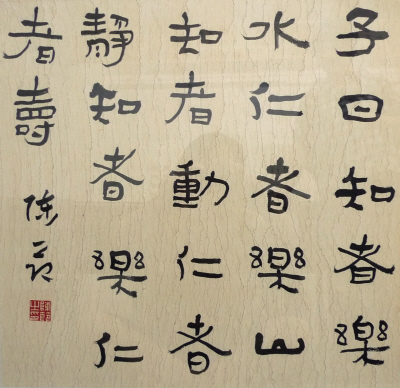 子曰知者樂
水仁者樂山
知者動仁者
静知者樂仁
者壽
陳